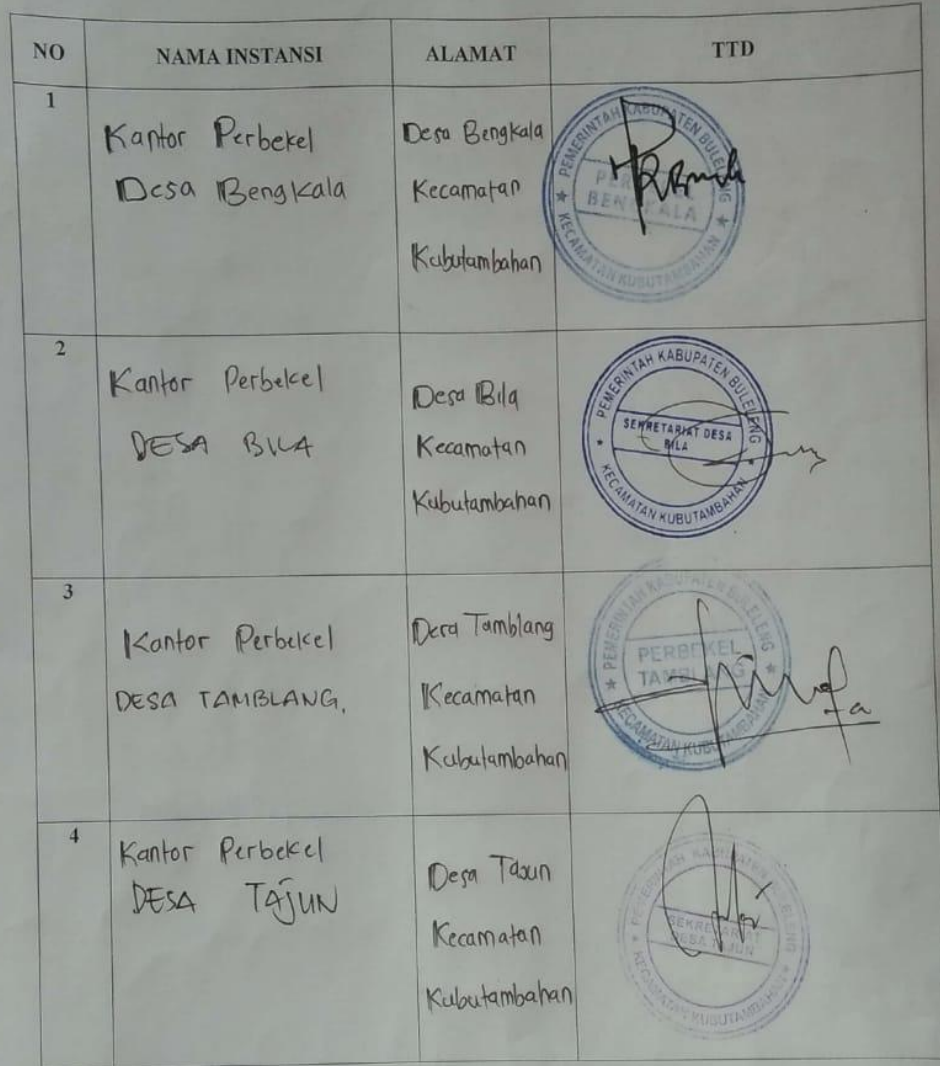 NO NAMA INSTANSI ALAMAT TTD
1
Kantor Perbekel
Desa Bengkala
Desa Bengkala
Kecamatan
Kubutambahan
PEMERINTAH KABUPATEN BULELENG
BENGKALA
KECAMATAN KUBUTAMBAHAN
2
Kantor Perbekel
DESA BILA
Desa Bila
Kecamatan
Kubutambahan
PEMERINTAH KABUPATEN BULELENG
SEKRETARIAT DESA
BILA
KECAMATAN KUBUTAMBAHAN
3
Kantor Perbekel
DESA TAMBLANG.
Desa Tamblang
Kecamatan
Kubutambahan
PEMERINTAH KABUPATEN BULELENG
PERBEKEL
TAMBLANG
KECAMATAN KUBUTAMBAHAN
4
Kantor Perbekel
DESA TAJUN
Desa Tajun
Kecamatan
Kubutambahan
PEMERINTAH KABUPATEN BULELENG
SEKRETARIAT
DESA TAJUN
KECAMATAN KUBUTAMBAHAN